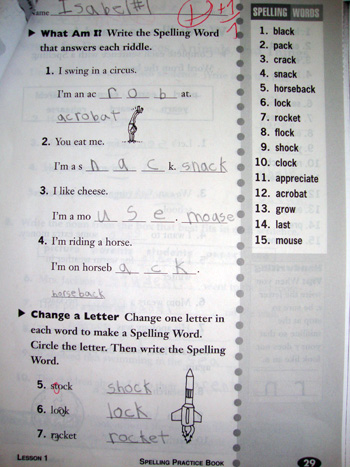 Name Isabel #1
+1
1
What Am I? Write the Spelling Word
that answers each riddle.
1. I swing in a circus.
I'm an ac r o b at.
acrobat
2. You eat me.
I'm a s n a c k. snack
3. I like cheese.
I'm a mo u s e. moase
4. I'm riding a horse.
I'm on horseb a c k.
horseback
Change a Letter Change one letter in
each word to make a Spelling Word.
Circle the letter. Then write the Spelling
Word.
5. stock shock
6. look lock
7. racket rocket
LESSON 1
SPELLING PRACTICE BOOK
29
SPELLING WORDS
1. black
2. pack
3. crack
4. snack
5. horseback
6. lock
7. rocket
8. flock
9. shock
10. clock
11. appreciate
12. acrobat
13. grow
14. last
15. mouse